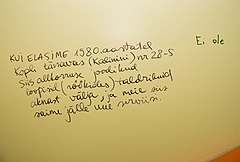 KUI ELASIME 1980. aastatel
Kopli tänavas (Kalinini) nr 28-5
siis allkorruse joodikud
loopisid (röökides) taldrikuid
aknast välja, ja meie siis
saime jälle uue serviisi.
Ei ole